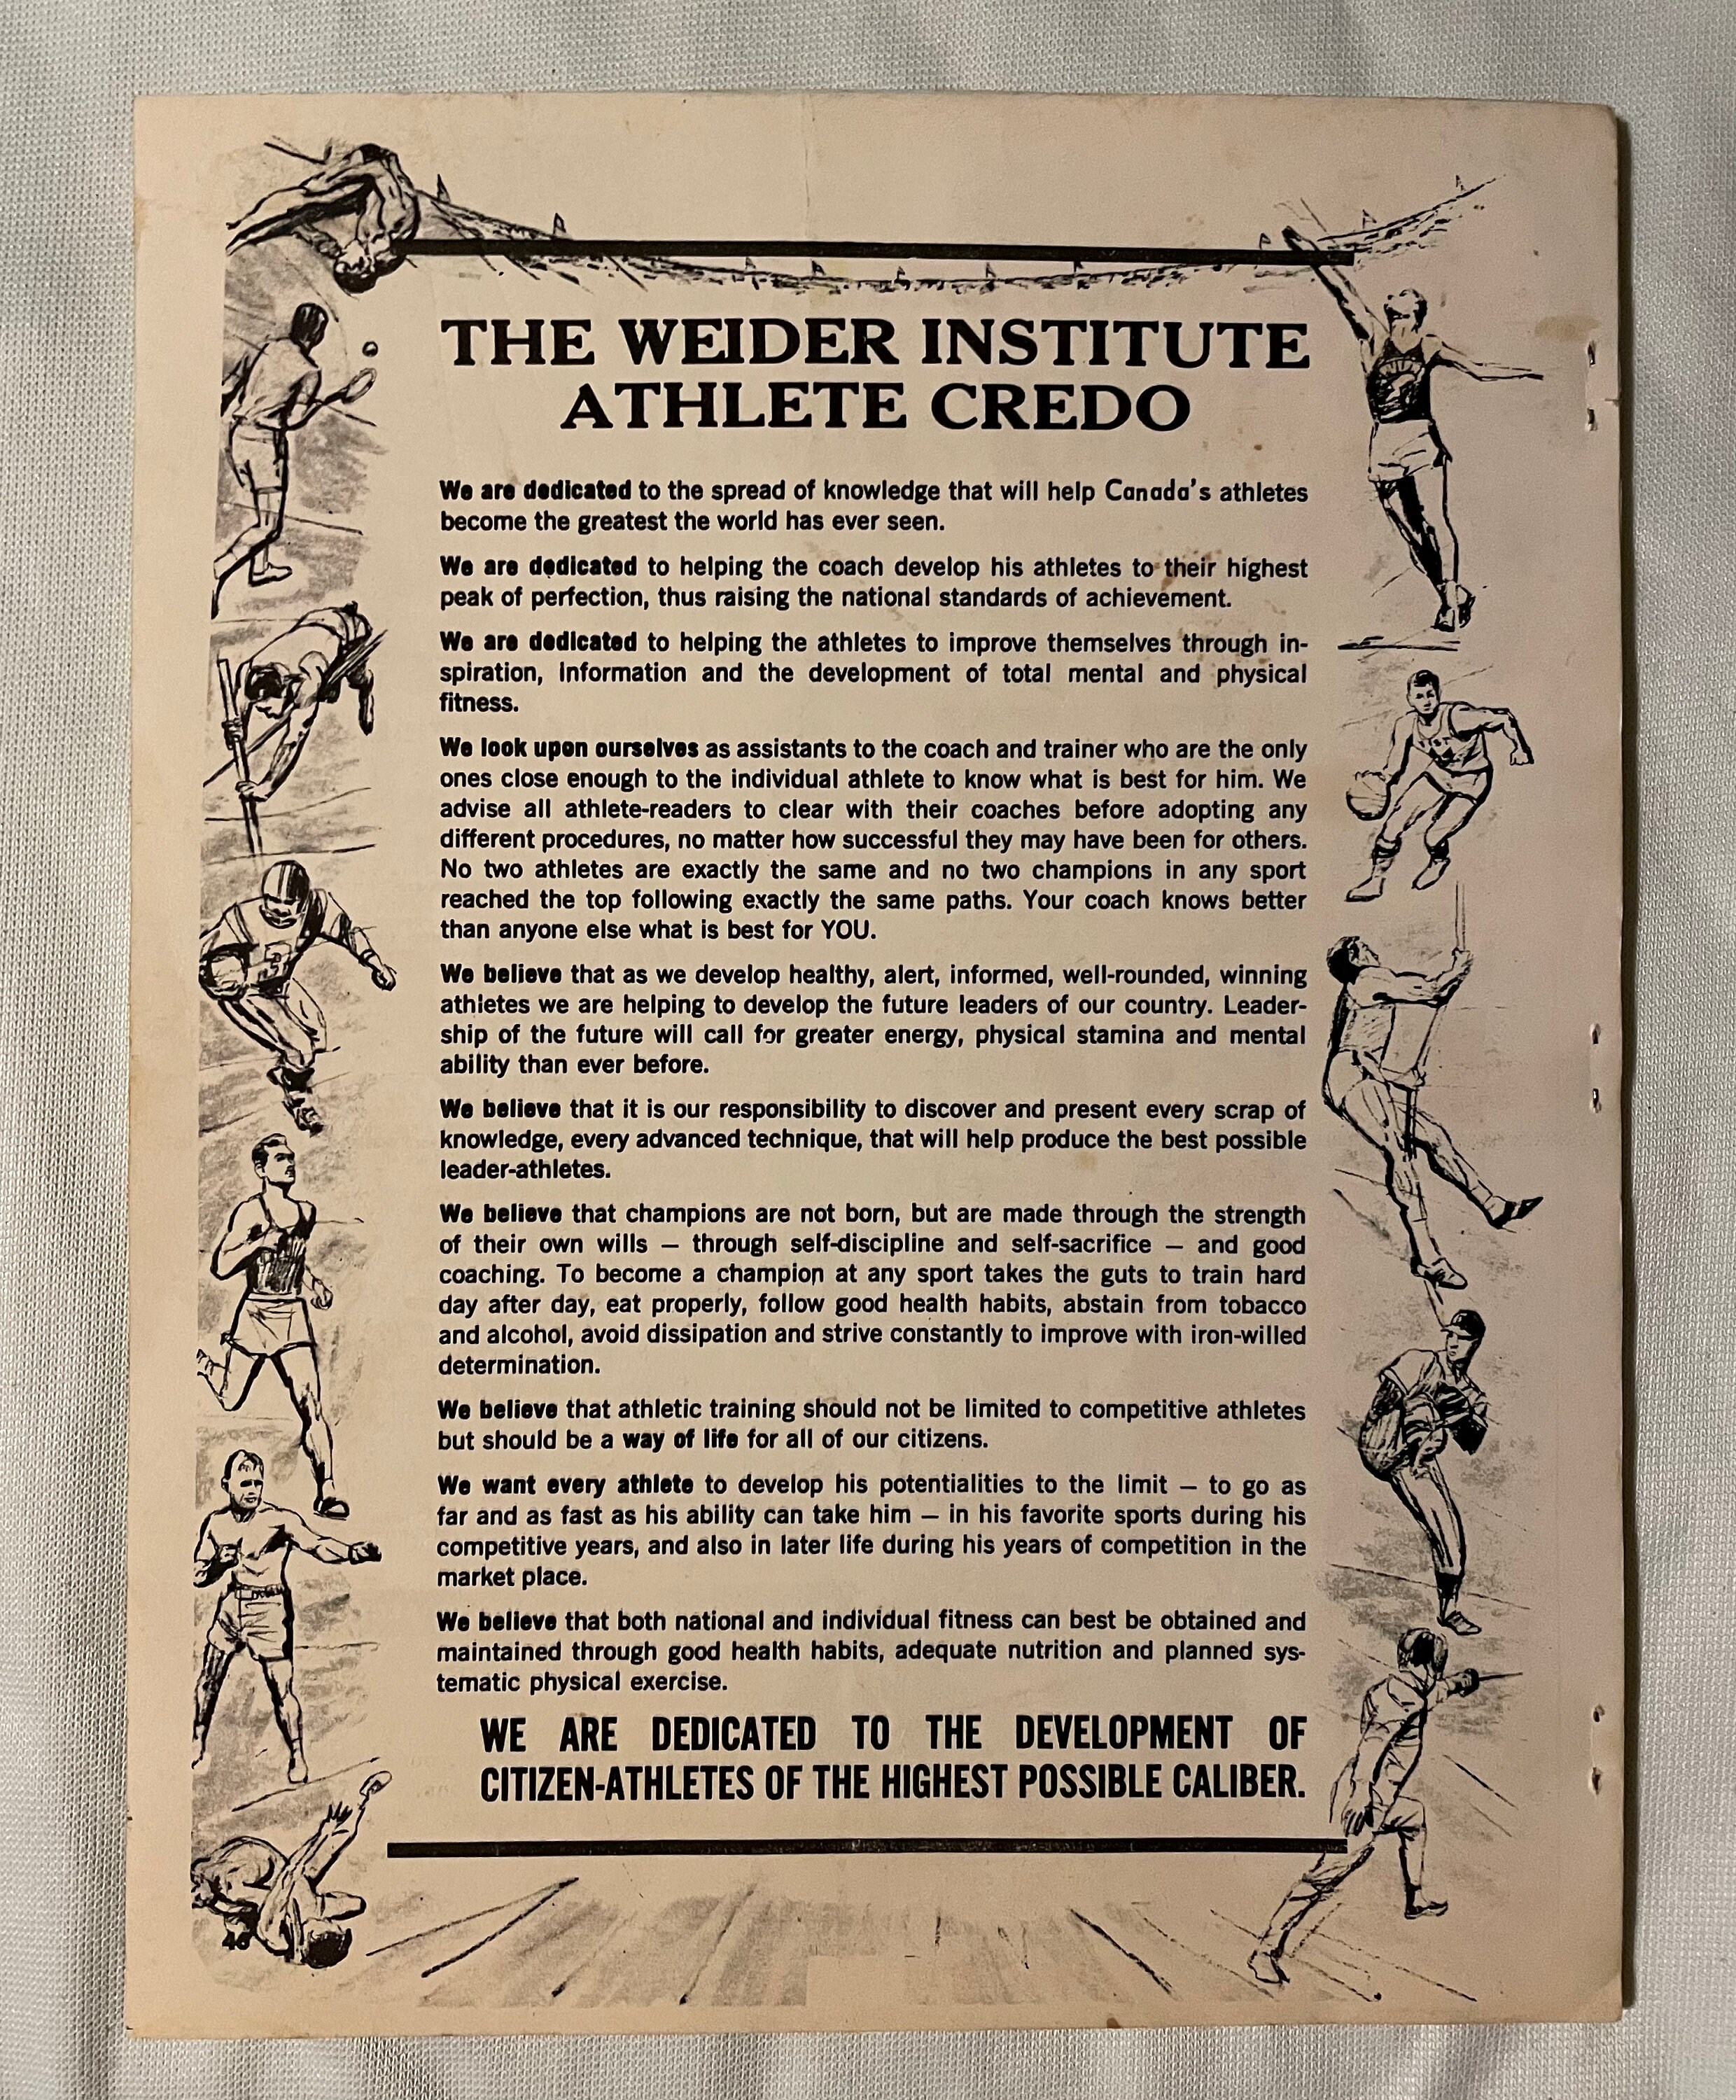 THE WEIDER INSTITUTE
ATHLETE CREDO
We are dedicated to the spread of knowledge that will help Canada's athletes
become the greatest the world has ever seen.
We are dedicated to helping the coach develop his athletes to their highest
peak of perfection, thus raising the national standards of achievement.
We are dedicated to helping the athletes to improve themselves through in-
spiration, information and the development of total mental and physical
fitness.
We look upon ourselves as assistants to the coach and trainer who are the only
ones close enough to the individual athlete to know what is best for him. We
advise all athlete-readers to clear with their coaches before adopting any
different procedures, no matter how successful they may have been for others.
No two athletes are exactly the same and no two champions in any sport
reached the top following exactly the same paths. Your coach knows better
than anyone else what is best for YOU.
We believe that as we develop healthy, alert, informed, well-rounded, winning
athletes we are helping to develop the future leaders of our country. Leader-
ship of the future will call for greater energy, physical stamina and mental
ability than ever before.
We believe that it is our responsibility to discover and present every scrap of
knowledge, every advanced technique, that will help produce the best possible
leader-athletes.
We believe that champions are not born, but are made through the strength
of their own wills — through self-discipline and self-sacrifice — and good
coaching. To become a champion at any sport takes the guts to train hard
day after day, eat properly, follow good health habits, abstain from tobacco
and alcohol, avoid dissipation and strive constantly to improve with iron-willed
determination.
We believe that athletic training should not be limited to competitive athletes
but should be a way of life for all of our citizens.
We want every athlete to develop his potentialities to the limit — to go as
far and as fast as his ability can take him — in his favorite sports during his
competitive years, and also in later life during his years of competition in the
market place.
We believe that both national and individual fitness can best be obtained and
maintained through good health habits, adequate nutrition and planned sys-
tematic physical exercise.
WE ARE DEDICATED TO THE DEVELOPMENT OF
CITIZEN-ATHLETES OF THE HIGHEST POSSIBLE CALIBER.
3